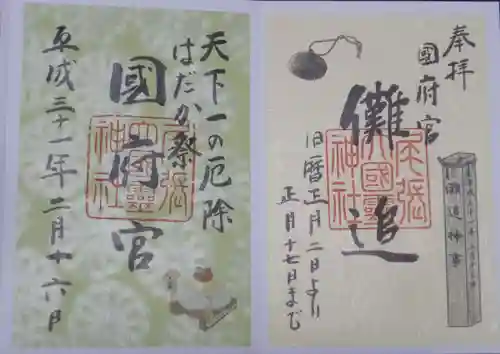 奉拝
國府宮
儺追
旧暦正月二日より
正月十七日まで
尾張
大國霊
神社
儺追神事
天下一の厄除
はだか祭
國府宮
尾張
大國霊
神社
平成三十一年二月十六日